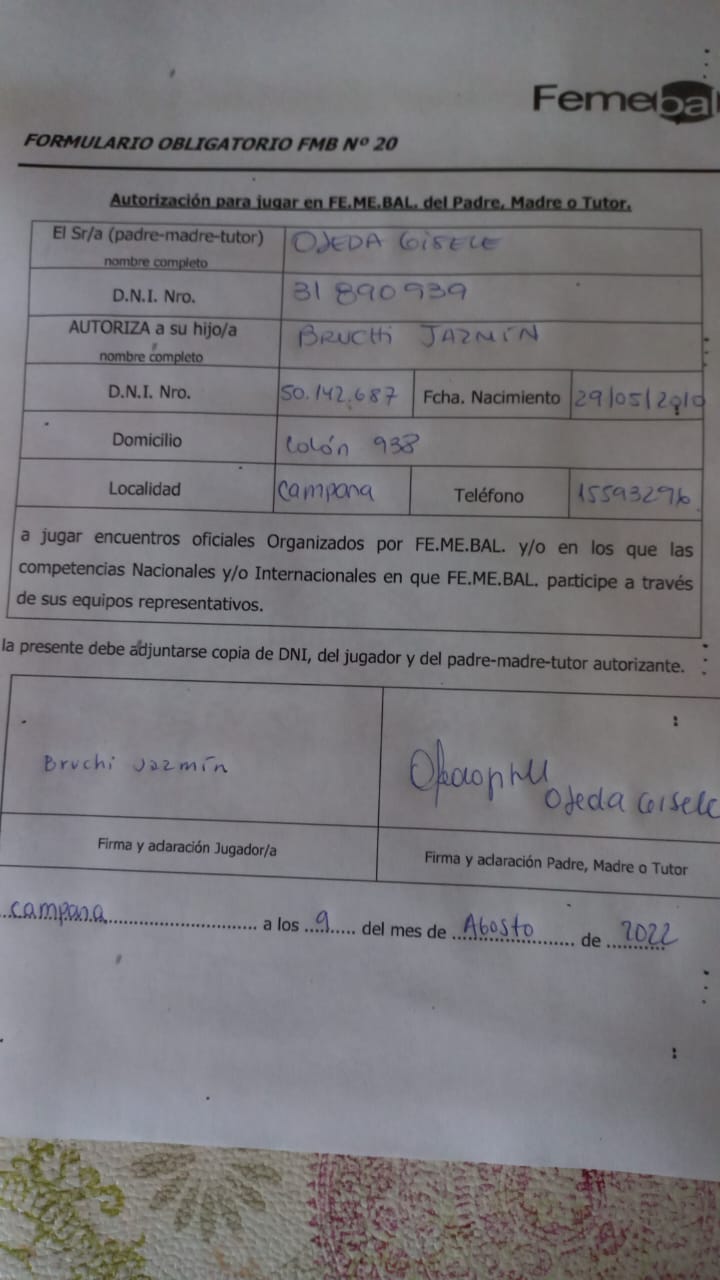 Femebal
FORMULARIO OBLIGATORIO FMB Nº 20
Autorización para jugar en FE.ME.BAL. del Padre, Madre o Tutor.
El Sr/a (padre-madre-tutor) OJEDA GISELE
nombre completo
D.N.I. Nro. 31 890 939
AUTORIZA a su hijo/a BRUCHI JAZMÍN
nombre completo
D.N.I. Nro. 50.142.687 Fcha. Nacimiento 29/05/2010
Domicilio Colón 938
Localidad Campana Teléfono 15593296
a jugar encuentros oficiales Organizados por FE.ME.BAL. y/o en los que las
competencias Nacionales y/o Internacionales en que FE.ME.BAL. participe a través
de sus equipos representativos.
la presente debe adjuntarse copia de DNI, del jugador y del padre-madre-tutor autorizante.
Bruchi Jazmín
Ojeda Gisele
Firma y aclaración Jugador/a
Firma y aclaración Padre, Madre o Tutor
campana a los 9 del mes de Agosto de 2022